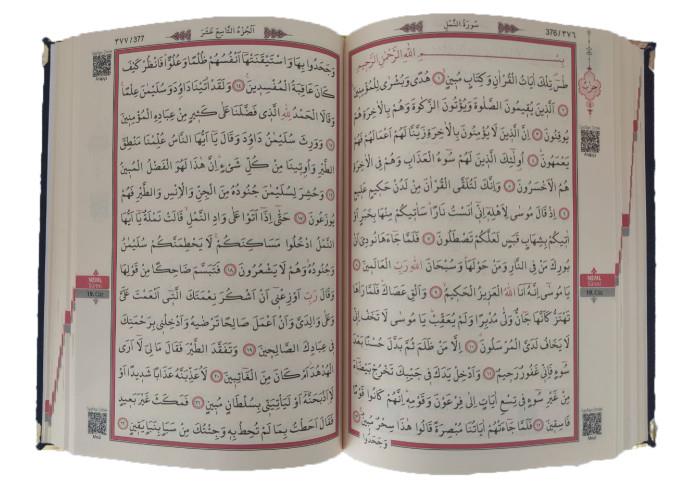 سُورَةُ النَّمْلِ
376/٣٧٦
بِسْمِ اللهِ الرَّحْمٰنِ الرَّحِيمِ
طٰسٓ تِلْكَ اٰيَاتُ الْقُرْاٰنِ وَكِتَابٍ مُبِينٍ ﴿١﴾ هُدًى وَبُشْرٰى لِلْمُؤْمِنِينَ
﴿٢﴾ اَلَّذِينَ يُقِيمُونَ الصَّلٰوةَ وَيُؤْتُونَ الزَّكٰوةَ وَهُمْ بِالْاٰخِرَةِ هُمْ
يُوقِنُونَ ﴿٣﴾ اِنَّ الَّذِينَ لَا يُؤْمِنُونَ بِالْاٰخِرَةِ زَيَّنَّا لَهُمْ اَعْمَالَهُمْ فَهُمْ
يَعْمَهُونَ ﴿٤﴾ اُولٰٓئِكَ الَّذِينَ لَهُمْ سُٓوءُ الْعَذَابِ وَهُمْ فِي الْاٰخِرَةِ
هُمُ الْاَخْسَرُونَ ﴿٥﴾ وَاِنَّكَ لَتُلَقَّى الْقُرْاٰنَ مِنْ لَدُنْ حَكِيمٍ عَلِيمٍ
﴿٦﴾ اِذْ قَالَ مُوسٰى لِاَهْلِهٓ اِنّٓي اٰنَسْتُ نَارًا سَاٰتِيكُمْ مِنْهَا بِخَبَرٍ اَوْ
اٰتِيكُمْ بِشِهَابٍ قَبَسٍ لَعَلَّكُمْ تَصْطَلُونَ ﴿٧﴾ فَلَمَّا جَٓاءَهَا نُودِيَ اَنْ
بُورِكَ مَنْ فِي النَّارِ وَمَنْ حَوْلَهَا وَسُبْحَانَ اللهِ رَبِّ الْعَالَمِينَ ﴿٨﴾
يَا مُوسٰٓى اِنَّهُٓ اَنَا اللهُ الْعَزِيزُ الْحَكِيمُ ﴿٩﴾ وَاَلْقِ عَصَاكَ فَلَمَّا رَاٰهَا
تَهْتَزُّ كَاَنَّهَا جَٓانٌّ وَلّٰى مُدْبِرًا وَلَمْ يُعَقِّبْ يَا مُوسٰى لَا تَخَفْ اِنّٓي
لَا يَخَافُ لَدَيَّ الْمُرْسَلُونَ ﴿١٠﴾ اِلَّا مَنْ ظَلَمَ ثُمَّ بَدَّلَ حُسْنًا بَعْدَ
سُٓوءٍ فَاِنّٓي غَفُورٌ رَحِيمٌ ﴿١١﴾ وَاَدْخِلْ يَدَكَ فِي جَيْبِكَ تَخْرُجْ بَيْضَٓاءَ
مِنْ غَيْرِ سُٓوءٍ فِي تِسْعِ اٰيَاتٍ اِلٰى فِرْعَوْنَ وَقَوْمِهٓ اِنَّهُمْ كَانُوا قَوْمًا
فَاسِقِينَ ﴿١٢﴾ فَلَمَّا جَٓاءَتْهُمْ اٰيَاتُنَا مُبْصِرَةً قَالُوا هٰذَا سِحْرٌ مُبِينٌ ﴿١٣﴾
وَجَحَدُوا
NEML
Sûresi
19. Cüz
اَلْجُزْءُ التَّاسِعَ عَشَرَ
٣٧٧/377
وَجَحَدُوا بِهَا وَاسْتَيْقَنَتْهَٓا اَنْفُسُهُمْ ظُلْمًا وَعُلُوًّا فَانْظُرْ كَيْفَ
كَانَ عَاقِبَةُ الْمُفْسِدِينَ ﴿١٤﴾ وَلَقَدْ اٰتَيْنَا دَاوُدَ وَسُلَيْمٰنَ عِلْمًا
وَقَالَا الْحَمْدُ لِلّٰهِ الَّذِي فَضَّلَنَا عَلٰى كَثِيرٍ مِنْ عِبَادِهِ الْمُؤْمِنِينَ
﴿١٥﴾ وَوَرِثَ سُلَيْمٰنُ دَاوُدَ وَقَالَ يَٓا اَيُّهَا النَّاسُ عُلِّمْنَا مَنْطِقَ
الطَّيْرِ وَاُوتِينَا مِنْ كُلِّ شَيْءٍ اِنَّ هٰذَا لَهُوَ الْفَضْلُ الْمُبِينُ
﴿١٦﴾ وَحُشِرَ لِسُلَيْمٰنَ جُنُودُهُ مِنَ الْجِنِّ وَالْاِنْسِ وَالطَّيْرِ فَهُمْ
يُوزَعُونَ ﴿١٧﴾ حَتّٰٓى اِذَٓا اَتَوْا عَلٰى وَادِ النَّمْلِ قَالَتْ نَمْلَةٌ يَٓا اَيُّهَا
النَّمْلُ ادْخُلُوا مَسَاكِنَكُمْ لَا يَحْطِمَنَّكُمْ سُلَيْمٰنُ
وَجُنُودُهُ وَهُمْ لَا يَشْعُرُونَ ﴿١٨﴾ فَتَبَسَّمَ ضَاحِكًا مِنْ قَوْلِهَا
وَقَالَ رَبِّ اَوْزِعْنٓي اَنْ اَشْكُرَ نِعْمَتَكَ الَّتٓي اَنْعَمْتَ عَلَيَّ
وَعَلٰى وَالِدَيَّ وَاَنْ اَعْمَلَ صَالِحًا تَرْضٰيهُ وَاَدْخِلْنِي بِرَحْمَتِكَ
فِي عِبَادِكَ الصَّالِحِينَ ﴿١٩﴾ وَتَفَقَّدَ الطَّيْرَ فَقَالَ مَا لِيَ لَٓا اَرَى
الْهُدْهُدَ اَمْ كَانَ مِنَ الْغَٓائِبِينَ ﴿٢٠﴾ لَاُعَذِّبَنَّهُ عَذَابًا شَدِيدًا اَوْ
لَا۬اَذْبَحَنَّهُٓ اَوْ لَيَأْتِيَنِّي بِسُلْطَانٍ مُبِينٍ ﴿٢١﴾ فَمَكَثَ غَيْرَ بَعِيدٍ
فَقَالَ اَحَطْتُ بِمَا لَمْ تُحِطْ بِهِ وَجِئْتُكَ مِنْ سَبَأٍ بِنَبَأٍ يَقِينٍ ﴿٢٢﴾
NEML
Sûresi
19. Cüz